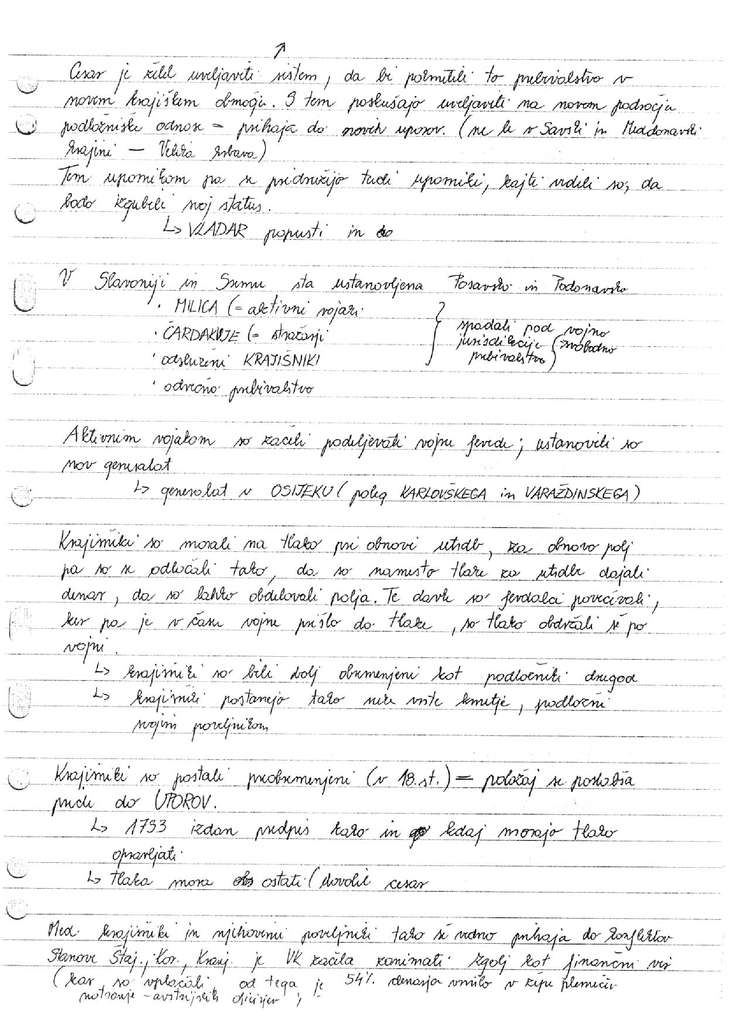 Cesar je želel uveljaviti sistem, da bi pokmetili to prebivalstvo v
novem krajiškem območju. S tem poskušajo uveljaviti na novem področju
podložniške odnose = prihaja do novih uporov. (ne le v Savski in Medonavski
krajini – Velika
Tem upornikom pa se pridružijo tudi uporniki, kajti videli so, da
bodo izgubili svoj status.
↳ VLADAR popusti in do
V Slavoniji in Sremu sta ustanovljena Posavska in Podonavska
· MILICA (= aktivni vojaki
· ČARDAKLIJE (= stražarji
· odsluženi KRAJIŠNIKI
· odvečno prebivalstvo
spadali pod vojno
jurisdikcijo (svobodno
prebivalstvo)
Aktivnim vojakom so začeli podeljevati vojne fevde; ustanovili so
nov generalat
↳ generalat v OSIJEKU (poleg KARLOVŠKEGA in VARAŽDINSKEGA)
Krajišniki so morali na tlako pri obnovi utrdb, za obnovo polj
pa so se odločali tako, da so namesto tlake za utrdbe dajali
denar, da so lahko obdelovali polja. Te davke so fevdalci povečevali,
ker pa je v času vojne prišlo do tlake, so tlako obdržali še po
vojni.
↳ krajišniki so bili bolj obremenjeni kot podložniki drugod
↳ krajišniki postanejo tako neke vrste kmetje, podložni
svojim poveljnikom
Krajišniki so postali preobremenjeni (v 18. st.) = položaj se poslabša
pride do UPOROV.
↳ 1753 izdan predpis kako in kdaj morajo tlako
opravljati.
↳ tlaka mora ostati (dovolil cesar
Med krajišniki in njihovimi poveljniki tako še vedno prihaja do konfliktov
Stanove Štaj., Kor., Kranj. je VK začela zanimati zgolj kot finančni vir
(kar so vplačali od tega je 54% denarja vrnilo v žepe plemičev
notranje-avstrijskih oficirjev;